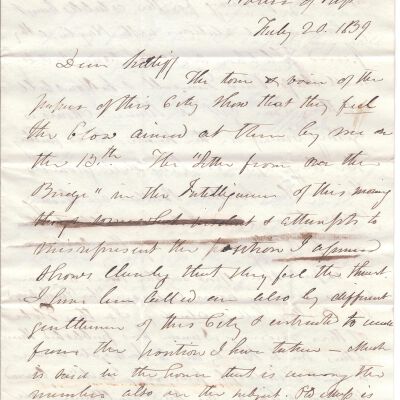 House of Rep
July 20. 1839
Dear
The tone & voice of the
papers of this City show that they feel
the blow aimed at them by me on
the 13th. The "Letter from over the
Bridge" in the Intelligencer of this morning
& attempts to
misrepresent the position I assumed
shows clearly that they feel the thrust.
I have been called on also by different
gentlemen of this City & entreated to
from the position I have taken - Much
is said in the house that is among the
members also on the subject. is